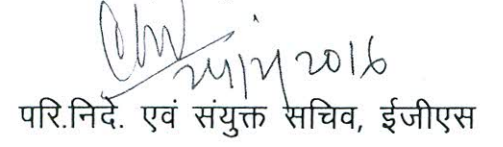 2016
परि.निदे. एवं संयुक्त सचिव, ईजीएस